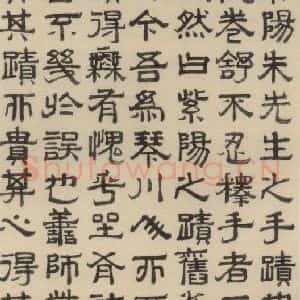 陽朱先生之手蹟
卷舒不忍擇手者
然白紫陽之蹟舊
今吾為琴川人而
得無有愧
不幾於誤也師
其蹟而貴其心得其
Shufawang.CN